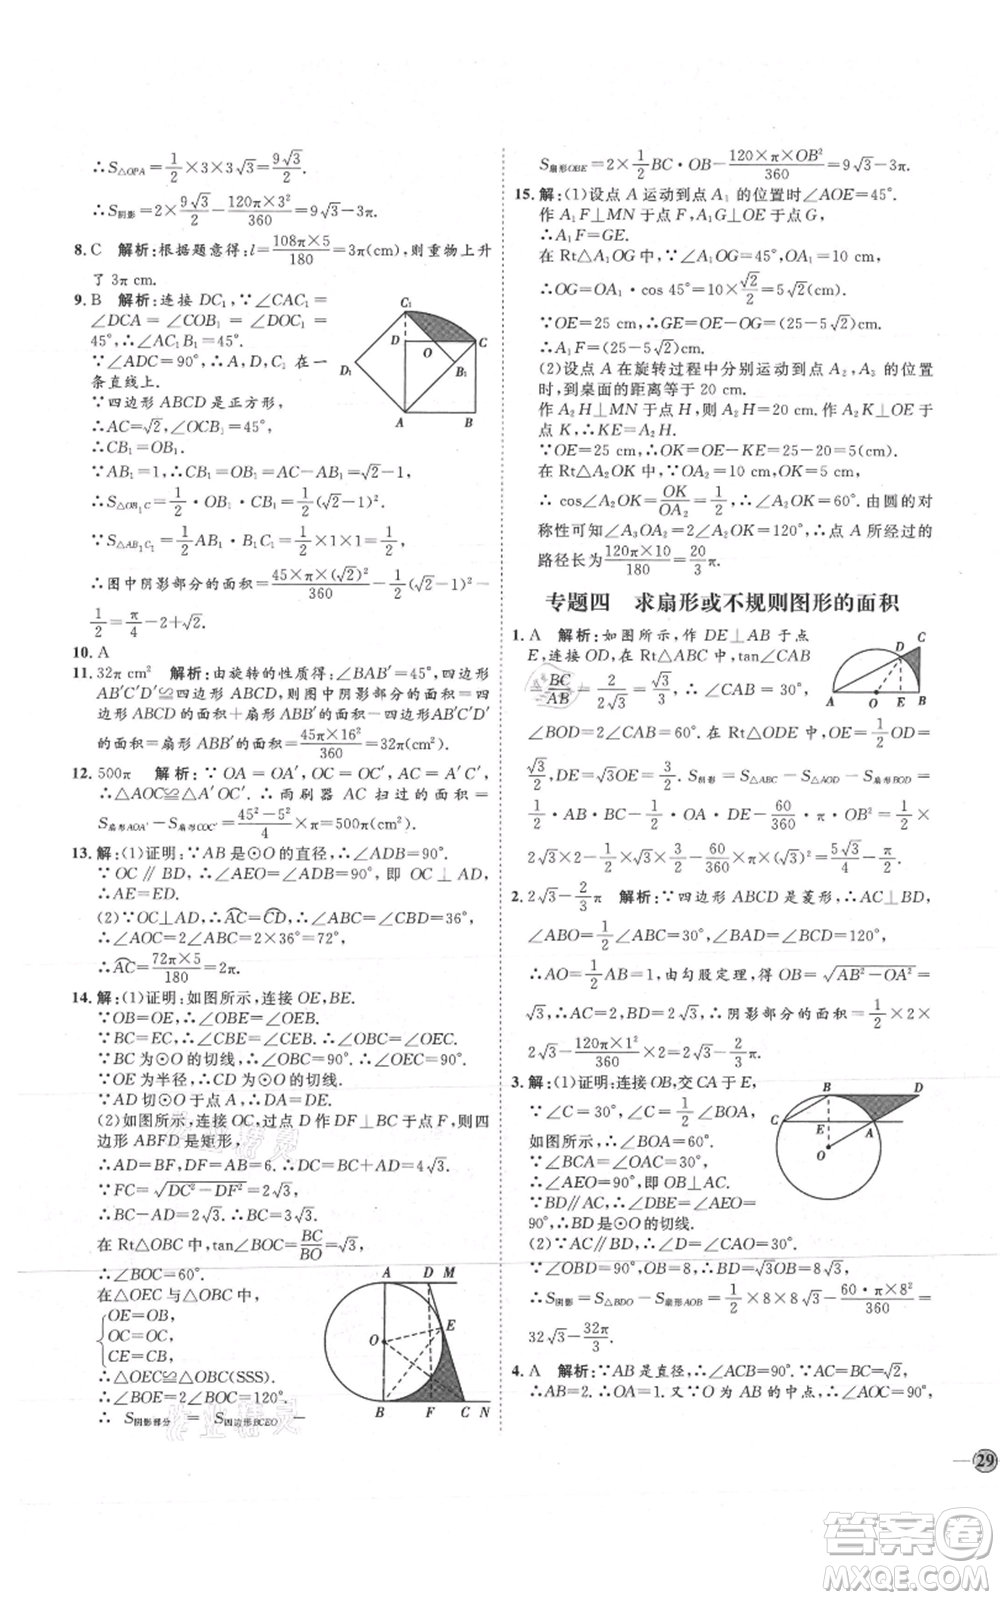 ∴S△OPA=1/2×3×3√3=9√3/2.
∴S阴影=2×9√3/2-120π×3²/360=9√3-3π.
8. C 解析:根据题意得:l=108π×5/180=3π(cm),则重物上升
了 3π cm.
9. B 解析:连接 DC₁,∵∠CAC₁=
∠DCA=∠COB₁=∠DOC₁=
45°,∴∠AC₁B₁=45°.
∵∠ADC=90°,∴A,D,C₁ 在一
条直线上.
∵四边形 ABCD 是正方形,
∴AC=√2,∠OCB₁=45°,
∴CB₁=OB₁.
∵AB₁=1,∴CB₁=OB₁=AC-AB₁=√2-1.
∴S△OB₁C=1/2·OB₁·CB₁=1/2(√2-1)².
∵S△AB₁C₁=1/2AB₁·B₁C₁=1/2×1×1=1/2,
∴图中阴影部分的面积=45×π×(√2)²/360-1/2(√2-1)²-
1/2=π/4-2+√2.
10. A
11. 32π cm² 解析:由旋转的性质得:∠BAB′=45°,四边形
AB′C′D′≌四边形 ABCD,则图中阴影部分的面积=四
边形 ABCD 的面积+扇形 ABB′的面积-四边形 AB′C′D′
的面积=扇形 ABB′的面积=45π×16²/360=32π(cm²).
12. 500π 解析:∵OA=OA′,OC=OC′,AC=A′C′,
∴△AOC≌△A′OC′.∴雨刷器 AC 扫过的面积=
S扇形AOA′-S扇形COC′=45²-5²/4×π=500π(cm²).
13. 解:(1)证明:∵AB是⊙O的直径,∴∠ADB=90°.
∵OC∥BD,∴∠AEO=∠ADB=90°,即 OC⊥AD,
∴AE=ED.
(2)∵OC⊥AD,∴AC=CD,∴∠ABC=∠CBD=36°,
∴∠AOC=2∠ABC=2×36°=72°,
∴AC=72π×5/180=2π.
14. 解:(1)证明:如图所示,连接 OE,BE.
∵OB=OE,∴∠OBE=∠OEB.
∵BC=EC,∴∠CBE=∠CEB,∴∠OBC=∠OEC.
∵BC 为⊙O 的切线,∴∠OEC=∠OBC=90°.
∵OE 为半径,∴CD 为⊙O 的切线.
∵AD 切⊙O 于点 A,∴DA=DE.
(2)如图所示,连接 OC,过点 D 作 DF⊥BC 于点 F,则四
边形 ABFD 是矩形,
∴AD=BF,DF=AB=6. ∴DC=BC+AD=4√3.
∵FC=√DC²-DF²=2√3,
∴BC-AD=2√3. ∴BC=3√3.
在 Rt△OBC 中,tan∠BOC=BC/BO=√3,
∴∠BOC=60°.
在△OEC 与△OBC 中,
OE=OB,
OC=OC,
CE=CB,
∴△OEC≌△OBC(SSS).
∴∠BOE=2∠BOC=120°.
∴ S阴影部分 = S四边形BCEO -
C₁
D
O
C
D₁
B₁
A
B
A
D
M
O
E
B
F
C
N
S扇形OBE=2×1/2BC·OB-120×π×OB²/360=9√3-3π.
15. 解:(1)设点 A 运动到点 A₁ 的位置时∠AOE=45°.
作 A₁F⊥MN 于点 F,A₁G⊥OE 于点 G,
∴A₁F=GE.
在 Rt△A₁OG 中,∵∠A₁OG=45°,OA₁=10 cm,
∴OG=OA₁·cos 45°=10×√2/2=5√2(cm).
∵OE=25 cm,∴GE=OE-OG=(25-5√2)cm.
∴A₁F=GE=(25-5√2)cm.
(2)设点 A 在旋转过程中分别运动到点 A₂,A₃ 的位置
时,到桌面的距离等于 20 cm.
作 A₂H⊥MN 于点 H,则 A₂H=20 cm.作 A₂K⊥OE 于
点 K,∴KE=A₂H=20 cm.
∵OE=25 cm,∴OK=OE-KE=25-20=5(cm).
在 Rt△A₂OK 中,∵OA₂=10 cm,OK=5 cm,
∴cos∠A₂OK=OK/OA₂=1/2,∴∠A₂OK=60°.由圆的对
称性可知∠A₃OA₂=2∠A₂OK=120°,∴点 A 所经过的
路径长为120π×10/180=20/3π.
专题四 求扇形或不规则图形的面积
1. A 解析:如图所示,作 DE⊥AB 于点
E,连接 OD,在 Rt△ABC 中,tan∠CAB
=BC/AB=2/2√3=√3/3,∴∠CAB=30°,
∠BOD=2∠CAB=60°.在 Rt△ODE 中,OE=1/2OD=
√3/2,DE=√3OE=3/2. S阴影=S△ABC-S△AOD-S扇形BOD=
1/2·AB·BC-1/2·OA·DE-60/360·π·OB²=1/2×
2√3×2-1/2×√3×3/2-60/360×π×(√3)²=5√3/4-π/2.
2. 2√3-2/3π 解析:∵四边形 ABCD 是菱形,AC⊥BD,
∠ABO=1/2∠ABC=30°,∠BAD=∠BCD=120°,
∴AO=1/2AB=1.由勾股定理,得 OB=√AB²-OA²=
√3,∴AC=2,BD=2√3.∴阴影部分的面积=1/2×2×
2√3-120π×1²/360×2=2√3-2/3π.
3. 解:(1)证明:连接 OB,交 CA 于 E,
∵∠C=30°,∠C=1/2∠BOA,
如图所示,∴∠BOA=60°.
∵∠BCA=∠OAC=30°,
∴∠AEO=90°,即 OB⊥AC.
∵BD∥AC,∴∠DBE=∠AEO=
90°,∴BD是⊙O的切线.
(2)∵AC∥BD,∠OCA=90°,∴∠D=∠CAO=30°.
∵∠OBD=90°,OB=8,∴BD=√3OB=8√3.
∴S阴影=S△BDO-S扇形AOB=1/2×8×8√3-60·π×8²/360=
32√3-32π/3.
4. A 解析:∵AB是直径,∴∠ACB=90°.∵AC=BC=√2,
∴AB=2.∴OA=1.又∵O为 AB 的中点,∴∠AOC=90°,
C
D
A
O
E
B
B
D
C
E
A
O
29
答案卷
MXQE.COM